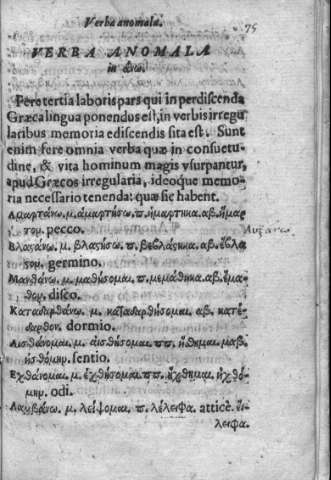 Verba anomala. 75
VERBA ANOMALA
in άνω.
Fere tertia laboris pars qui in perdiscenda
Græca lingua ponendus est, in verbis irregu
laribus memoria ediscendis sita est. Sunt
enim fere omnia verba quæ in consuetu-
dine, & vita hominum magis vsurpantur,
apud Græcos irregularia, ideoque memo-
ria necessario tenenda: quæ sic habent.
Αμαρτάνω. μ. ἁμαρτήσω. π. ἡμάρτηκα. αβ. ἥμαρ
τον. pecco.
Βλαστάνω. μ. βλαστήσω. π. βεβλάστηκα. αβ. ἔβλα
στον. germino.
Μανθάνω. μ. μαθήσομαι. π. μεμάθηκα. αβ. ἔμα-
θον. disco.
Καταδαρθάνω. μ. καταδαρθήσομαι. αβ. κατέ-
δαρθον. dormio.
Αισθάνομαι. μ. αἰσθήσομαι. ππ. ᾔσθημαι. μαβ.
ᾐσθόμην. sentio.
Εχθάνομαι. μ. ἐχθήσομαι. ππ. ἤχθημαι. ἠχθό-
μην. odi.
Λαμβάνω. μ. λείψομαι. π. λέλειφα. atticè. εἴ-
λειφα.